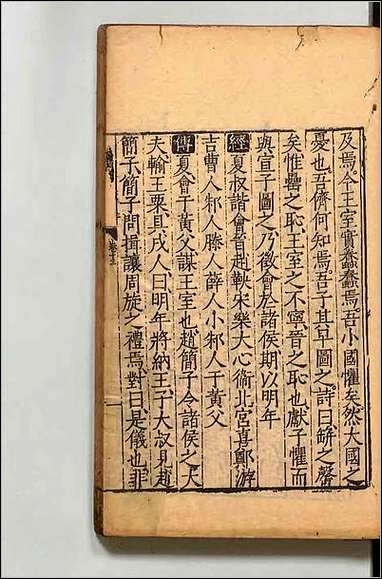 及焉今王室實蠢蠢焉吾小國懼矣然大國之
憂也吾儕何知焉吾子其早圖之詩曰缾之罄
矣惟罍之恥王室之不寧晉之恥也獻子懼而
與宣子圖之乃徵會於諸侯期以明年
經夏叔詣會晉趙鞅宋樂大心衞北宮喜鄭游
吉曹人邾人滕人薛人小邾人于黃父
傳夏會于黃父謀王室也趙簡子令諸侯之大
夫輸王粟具戍人曰明年將納王子大叔見趙
簡子簡子問揖讓周旋之禮焉對曰是儀也非